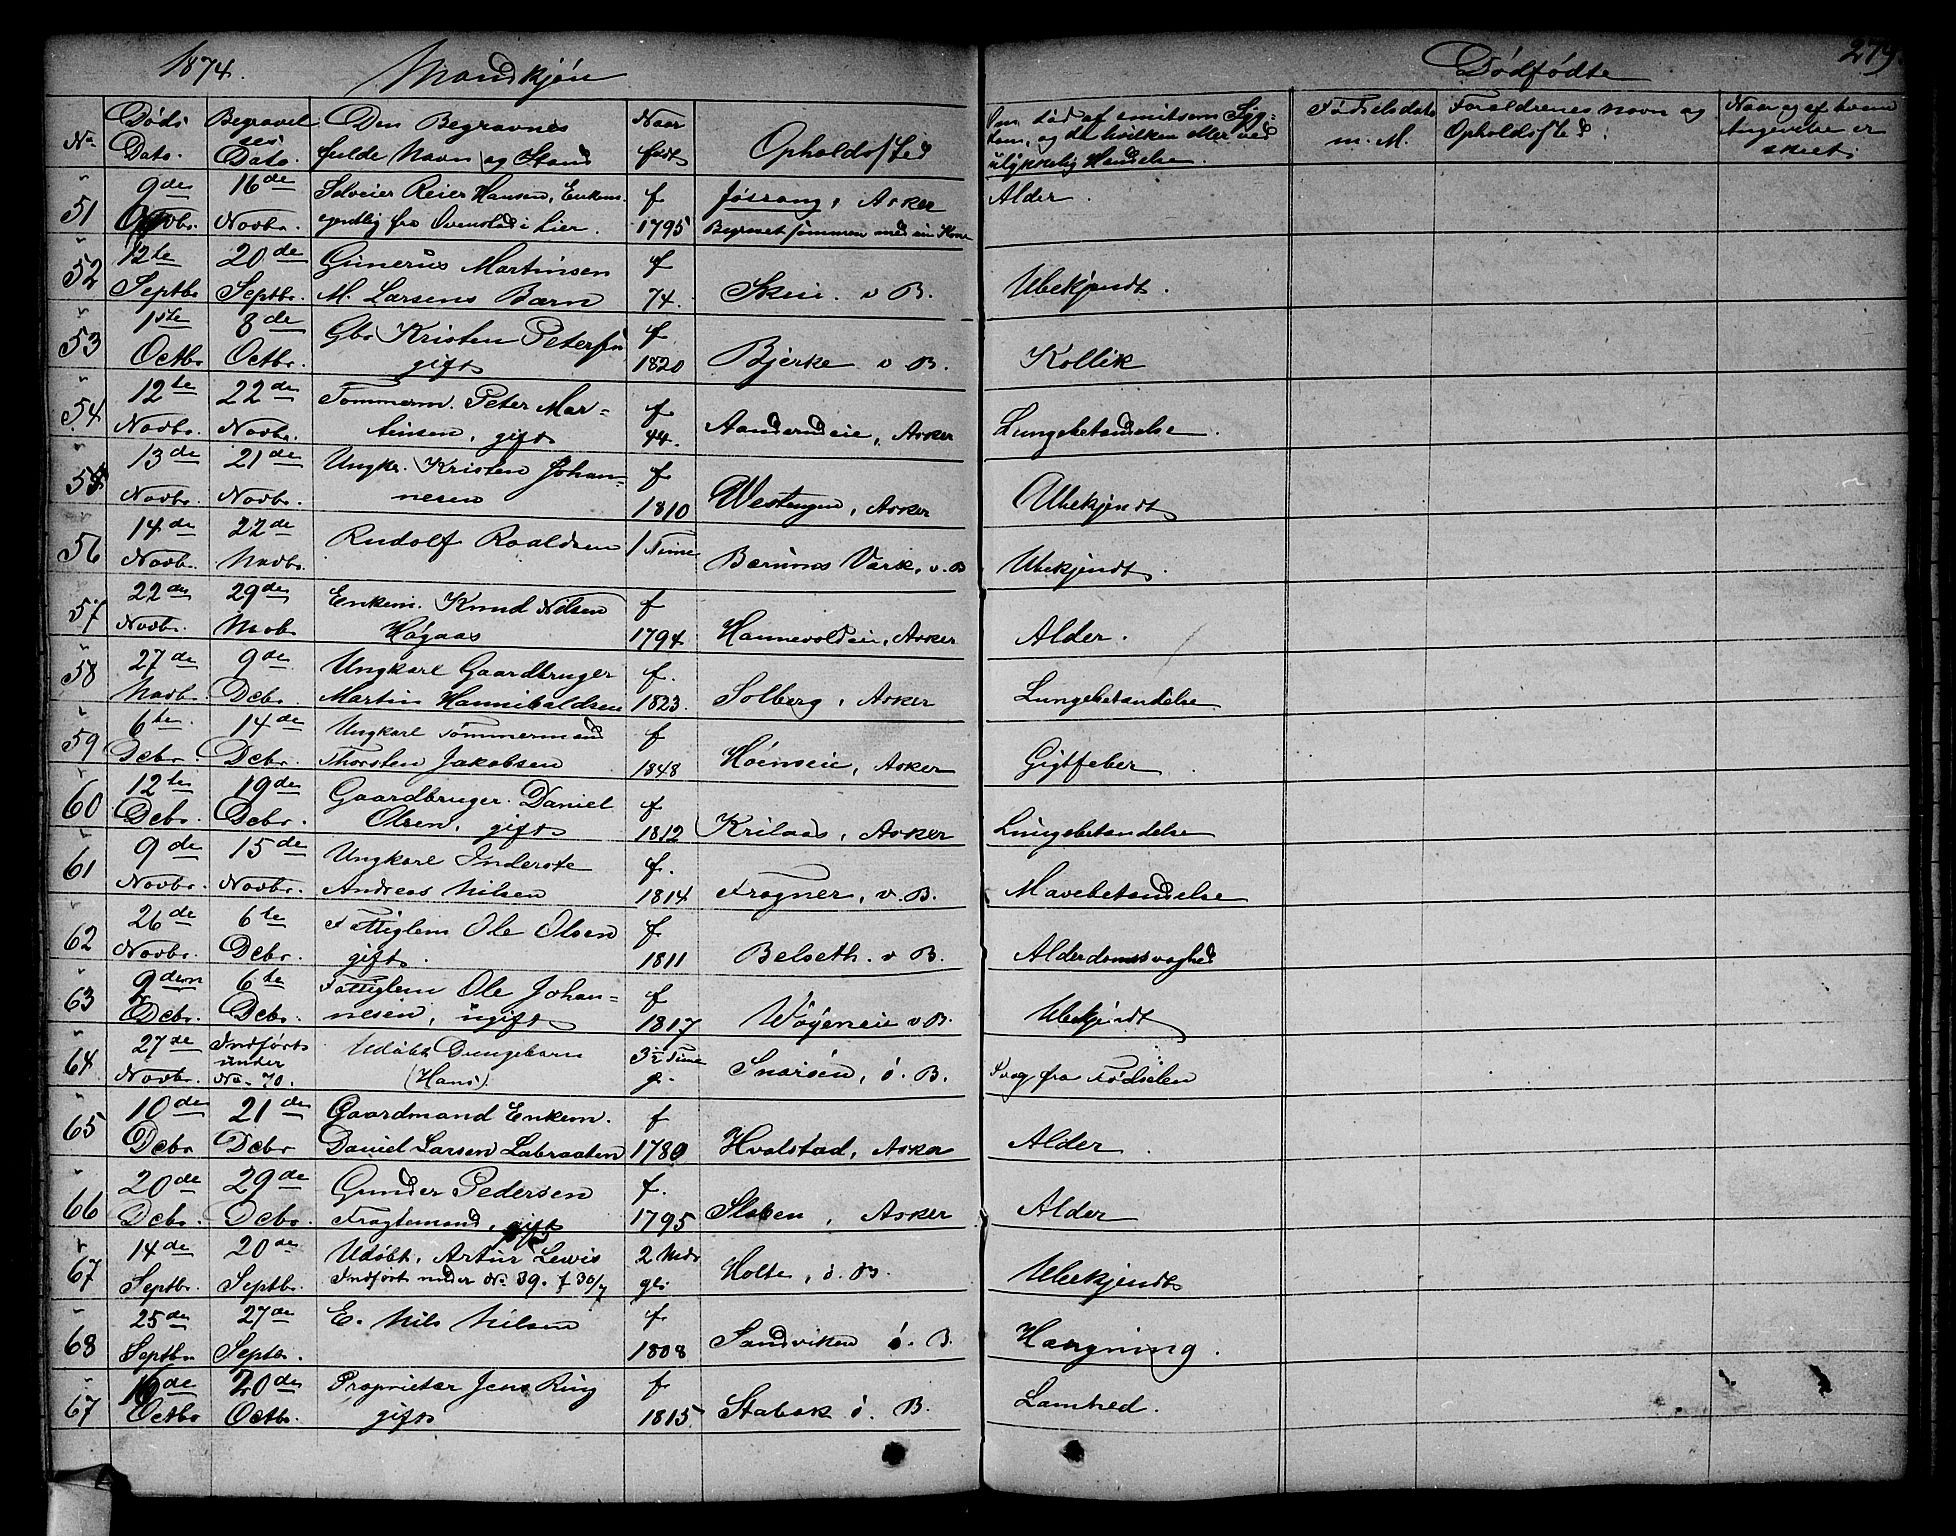 1874. Mandkjön
Dödfödte 279.
No
Döds Dato.
Begravelses Dato.
Den Begravnes fulde Navn og Stand
Naar født
Opholdssted
Om død af smitsom Syg=
dom, og da hvilken eller ved
ulykkelig Hændelse.
Fødselsdato
m. M.
Forældrenes Navn og
Opholdssted.
Naar og af hvem
Angivelse er
skeet.
51 9de Novbr. 16de Novbr. Selveier Reier Hansen, Enkem. f Jøssang, Asker Alder.
fra Ovenstad i Lier. 1795 Begravet sammen med sin Kone
52 12te Septbr. 20de Septbr. Gunerius Martinsen f
M. Larsens Barn 74. Skui. v B. Ubekjendt.
53 1ste Octbr. 8de Octbr. Gbr Kristen Petersen f
gift 1820 Bjerke v B. Kollik
54 12te Novbr. 22de Novbr. Tømmerm. Peter Mar=
tinsen, gift f 44. Asker Lungebetændelse.
55 13de Novbr. 21de Novbr. Ungkr. Kristen Johan=
nesen f 1810 Westengen, Asker Ubekjendt
56 14de Novbr. 22de Novbr. Rudolf Roaldsen 1 Time Bærums Værk, v. B Ubekjendt.
57 22de Novbr. 29de Enkem. Knud Nilsen f
Høgaas 1794 Hannevoldeie, Asker Alder.
58 27de Novbr. 9de Debr. Ungkarl Gaardbruger f.
Martin Hannibaldsen 1823. Solberg, Asker Lungebetændelse
59 6te Debr. 14de Debr. Ungkarl Tømmermand f
Thorsten Jakobsen 1848 Høinseie, Asker Gigtfeber
60 12te Debr. 19de Debr. Gaardbruger. Daniel f
Olsen, gift 1812 Krilaas, Asker Lungebetændelse
61 9de Novbr. 15de Novbr. Ungkarl Inderste f.
Andreas Nilsen 1814 Frogner, v. B. Mavebetændelse
62 26de Novbr. 6te Debr. Fattiglem Ole Olsen f
gift. 1811 Belseth. v B. Alderdomssvaghed
63 Debr. 6te Debr. Fattiglem Ole Johan=
nesen, ugift f 1817 Wøyeneie v B. Ubekjendt
64 27de Novbr. Indført under No. 70. Udøbt Drengebarn
(Hans) Snarøen, ö. B. Svag fra Fødselen
65 10de Debr 21de Debr Gaardmand Enkem. f
Daniel Larsen Labraaten 1780 Hvalstad, Asker Alder.
66 20de Debr. 29de Debr. Gunder Pedersen f.
Fragtemand, gift 1795 Staben, Asker Alder
67 14de Septbr. 20de Septbr. Udøbt. Artur Lewis 2 Mdr
Indført under No. 39. f 30/7 gl. Holte, ö. B. Ubekjendt
68 25de Septbr 27de Septbr. E. Nils Nilsen f
1808 Sandviken ö. B. Hængning.
67 16de Octbr 20de Octbr. Proprietær Jens Ring f
gift 1815 Stabæk ö. B. Lamhed.